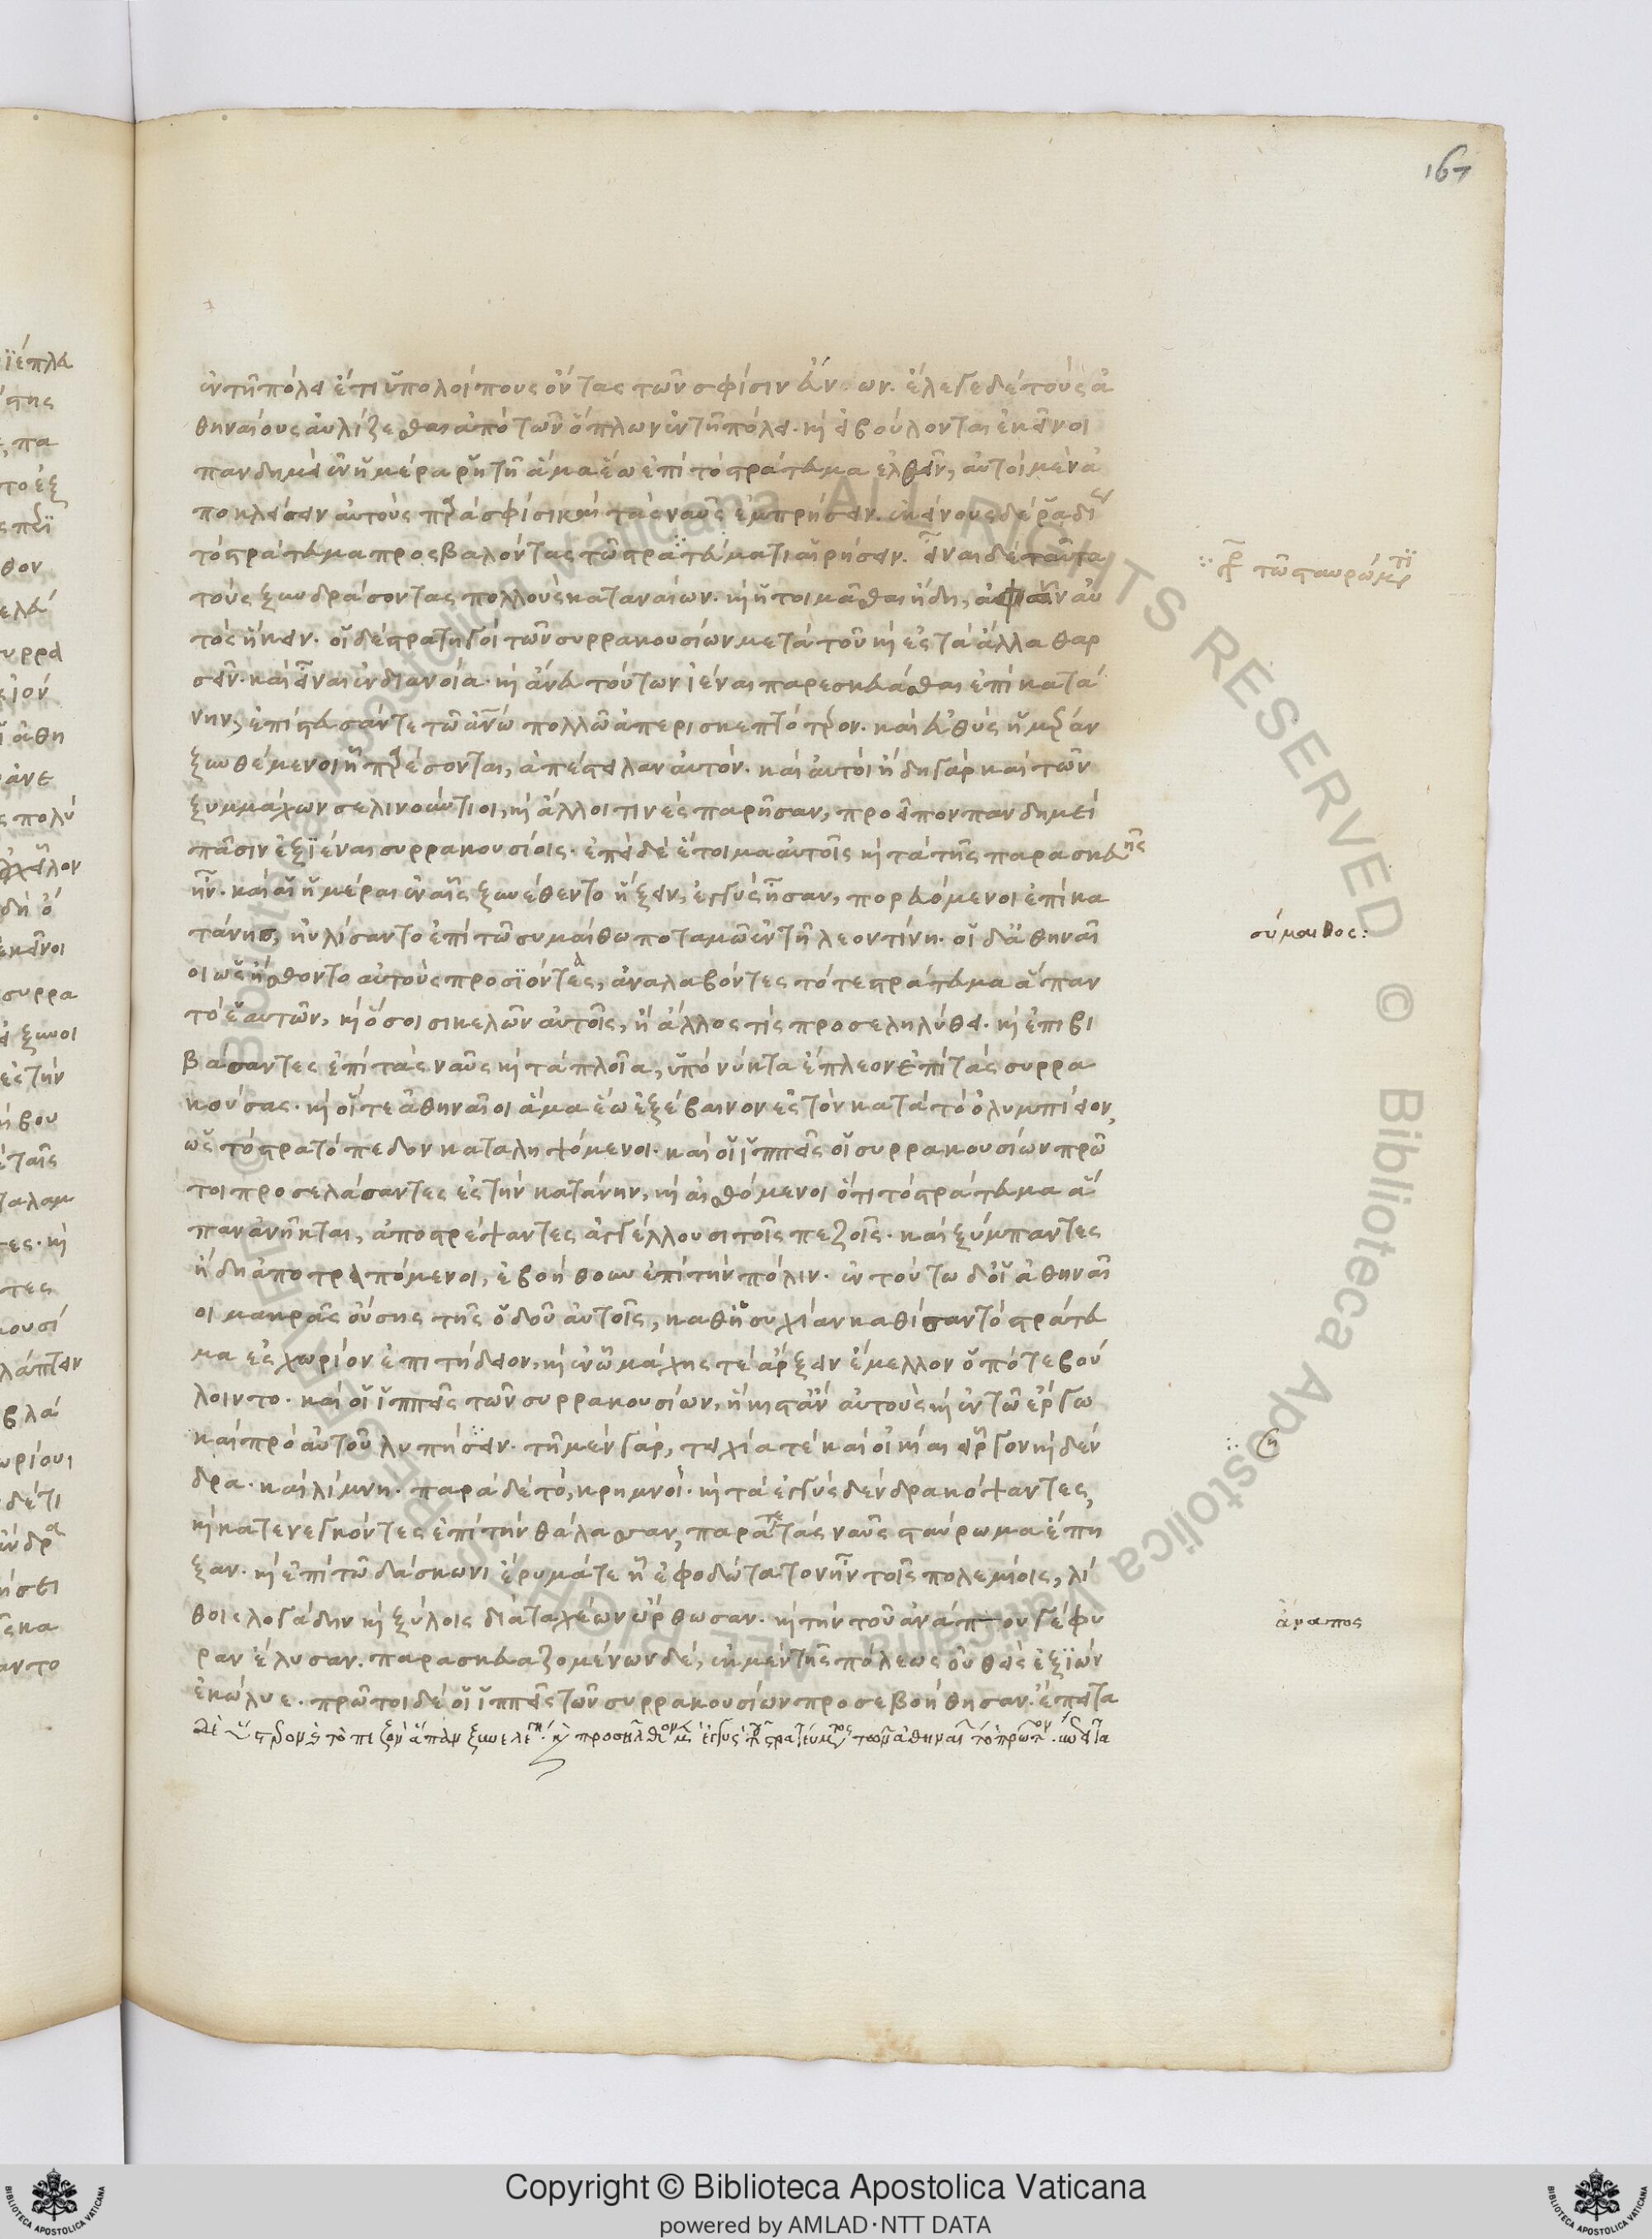 167
ἐν τῆ πόλει ἔτι ὑπολοίπους ὄντας τῶν σφίσιν εὔνων. ἔλεγε δὲ τοὺς ἀ
θηναίους αὐλίζεσθαι ἀπὸ τῶν ὅπλων ἐν τῆ πόλει. καὶ εἰ βούλονται ἐκεῖνοι
πανδημεὶ ἐν ἡμέρα ῥητῆ ἅμα ἕω ἐπὶ τὸ στράτευμα ἐλθεῖν, αὐτοὶ μὲν ἀ
ποκλείσειν αὐτοὺς παρὰ σφίσι καὶ τὰς ναῦς ἐμπρήσειν. ἐκείνους δὲ ῥαδί
τὸ στράτευμα προσβαλόντας τῶ στρατεύματι αἱρήσειν. εἶναι δὲ ταῦτα
τῶ σταυρώματι
τοὺς ξυνδράσοντας πολλοὺς καταναίων. καὶ ἡτοιμᾶσθαι ἤδη, ἀφ' ὧν αὐ
τὸς ἥκειν. οἱ δὲ στρατηγοὶ τῶν συρρακουσίων μετὰ τοῦ καὶ ἐς τὰ ἄλλα θαρ
σεῖν. καὶ εἶναι ἐν διανοία. καὶ ἄνευ τούτων ἰέναι παρεσκευάσθαι ἐπὶ κατά
νην, ἐπίστευσάν τε τῶ ἀνω πολλῶ ἀπερισκεπτότερον. καὶ εὐθὺς ἡμέραν
ξυνθέμενοι ἧ παρέσονται, ἀπέστειλαν αὐτόν. καὶ αὐτοὶ ἤδη γὰρ καὶ τῶν
ξυμμάχων σελινούντιοι, καὶ ἄλλοι τινὲς παρῆσαν, προεῖπον πανδημεὶ
πᾶσιν ἐξϊέναι συρρακουσίοις. ἐπεὶ δὲ ἕτοιμα αὐτοῖς καὶ τὰ τῆς παρασκευῆς
ἦν. καὶ αἱ ἡμέραι ἐν αἷς ξυνέθεντο ἥξειν, ἐγγὺς ἦσαν, πορευόμενοι ἐπὶ κα
τάνης, ηὐλίσαντο ἐπὶ τῶ συμαίθω ποταμῶ ἐν τῆ λεοντίνη. οἱ δ' ἀθηναῖ
σύμαιθος:
οι ὡς ἤσθοντο αὐτοὺς προσϊόντας, ἀναλαβόντες τό τε στράτευμα ἅπαν
τὸ ἑαυτῶν, καὶ ὅσοι σικελῶν αὐτοῖς, ἢ ἄλλος τὶς προσεληλύθει. καὶ ἐπιβι
βάσαντες ἐπὶ τὰς ναῦς καὶ τὰ πλοῖα, ὑπὸ νύκτα ἔπλεον ἐπὶ τὰς συρρα
κούσας. καὶ οἵ τε ἀθηναῖοι ἅμα ἕω ἐξέβαινον ἐς τὸν κατὰ τὸ ὀλυμπίειον,
ὡς τὸ στρατόπεδον καταληψόμενοι. καὶ οἱ ἱππεῖς οἱ συρρακουσίων πρῶ
τοι προσελάσαντες ἐς τὴν κατάνην, καὶ αἰσθόμενοι ὅτι τὸ στράτευμα ἅ
παν ἀνῆκται, ἀποστρέψαντες ἀγγέλλουσι τοῖς πεζοῖς. καὶ ξύμπαντες
ἤδη ἀποτρεπόμενοι, ἐβοήθουν ἐπὶ τὴν πόλιν. ἐν τούτω δ' οἱ ἀθηναῖ
οι μακρᾶς οὔσης τῆς ὁδοῦ αὐτοῖς, καθ' ἡσυχίαν καθίσαν τὸ στράτευ
μα ἐς χωρίον ἐπιτήδειον, καὶ ἐν ὧ μάχης τὲ ἄρξειν ἔμελλον ὁπότε βού
λοιντο. καὶ οἱ ἱππεῖς τῶν συρρακουσίων, ἥκιστ' ἂν αὐτοὺς καὶ ἐν τῶ ἔργω
καὶ πρὸ αὐτοῦ λυπήσειν. τῆ μὲν γὰρ, τειχία τὲ καὶ οἰκίαι εἶργον καὶ δέν
δρα. καὶ λίμνη. παρὰ δὲ τὸ, κρημνοί. καὶ τὰ ἐγγὺς δένδρα κόψαντες,
καὶ κατενεγκόντες ἐπὶ τὴν θάλασσαν, παρά τε τὰς ναῦς σταύρωμα ἔπη
ξαν. καὶ ἐπὶ τῶ δάσκωνι ἔρυμά τε ἧ ἐφοδώτατον ἦν τοῖς πολεμίοις, λί
θοις λογάδην καὶ ξύλοις διὰ ταχέων ὤρθωσαν. καὶ τὴν τοῦ ἀνάπου γέφυ
ἄναπος
ραν ἔλυσαν. παρασκευαζομένων δὲ, ἐκ μὲν τῆς πόλεως οὐθεὶς ἐξϊὼν
ἐκώλυε. πρῶτοι δὲ οἱ ἱππεῖς τῶν συρρακουσίων προσεβοήθησαν. ἔπειτα
δὲ ὕστερον καὶ τὸ πεζὸν ἅπαν ξυνελέγη. καὶ προσῆλθον μὲν ἐγγὺς τοῦ στρατεύματος τῶν ἀθηναίων τὸ πρῶτον. ἔπειτα
Copyright © Biblioteca Apostolica Vaticana
powered by AMLAD·NTT DATA